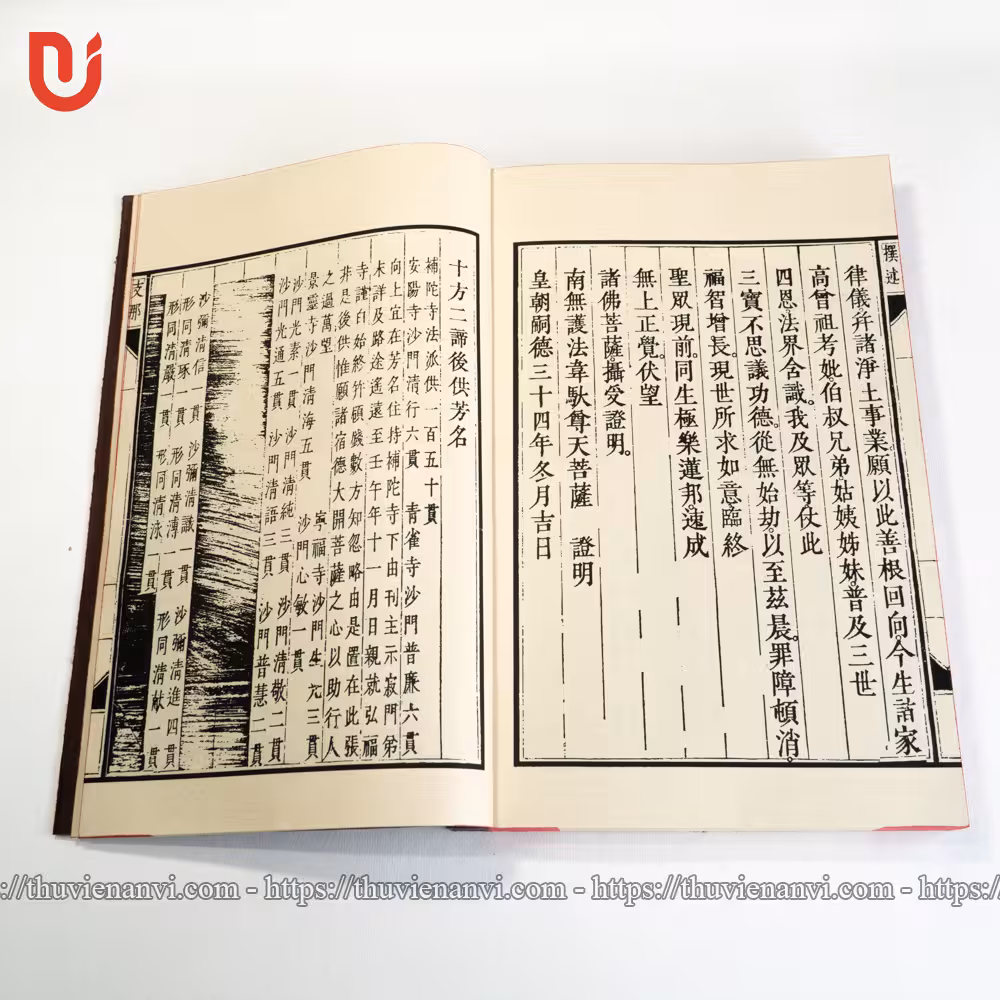 撰述
律儀并諸淨土事業願以此善根回向。今生諸家
高曾祖考妣伯叔兄弟姑姨姊妹。普及三世
四恩。法界含識。我及眾等。仗此
三寶不思議功德。從無始劫。以至茲晨。罪障頓消。
福智增長。現世所求如意臨終
聖眾現前。同生極樂蓮邦。速成
無上正覺。伏望
諸佛菩薩。攝受證明。
南無護法韋馱尊天菩薩 證明
皇朝嗣德三十四年冬月吉日
十方二諦後供芳名
補陀寺法派供一百五十貫
安陽寺沙門清行六貫 青雀寺沙門普廉六貫
向上宜在芳名住持補陀寺下由刊主示寂門弟
未詳及路途遙遠至壬午年十一月日親就弘福
寺謹白始終竹碩賤數方知忽略由是置在此張
非是後供惟願諸宿德大開菩薩之心以助行人
之過萬望
景靈寺沙門清海五貫 寧福寺沙門生六三貫
沙門光素一貫 沙門清純三貫 沙門心敏一貫
沙門光通五貫 沙門清語三貫 沙門清敬二貫
沙門普慧二貫
沙彌清信 沙彌清識一貫 沙彌清進四貫
形同清琢一貫 形同清溥一貫 形同清献一貫
形同清嚴一貫 形同清泳一貫
支那
https://thuvienanvi.com - https://thuvienanvi.com - https://thuvienanvi.com - https://